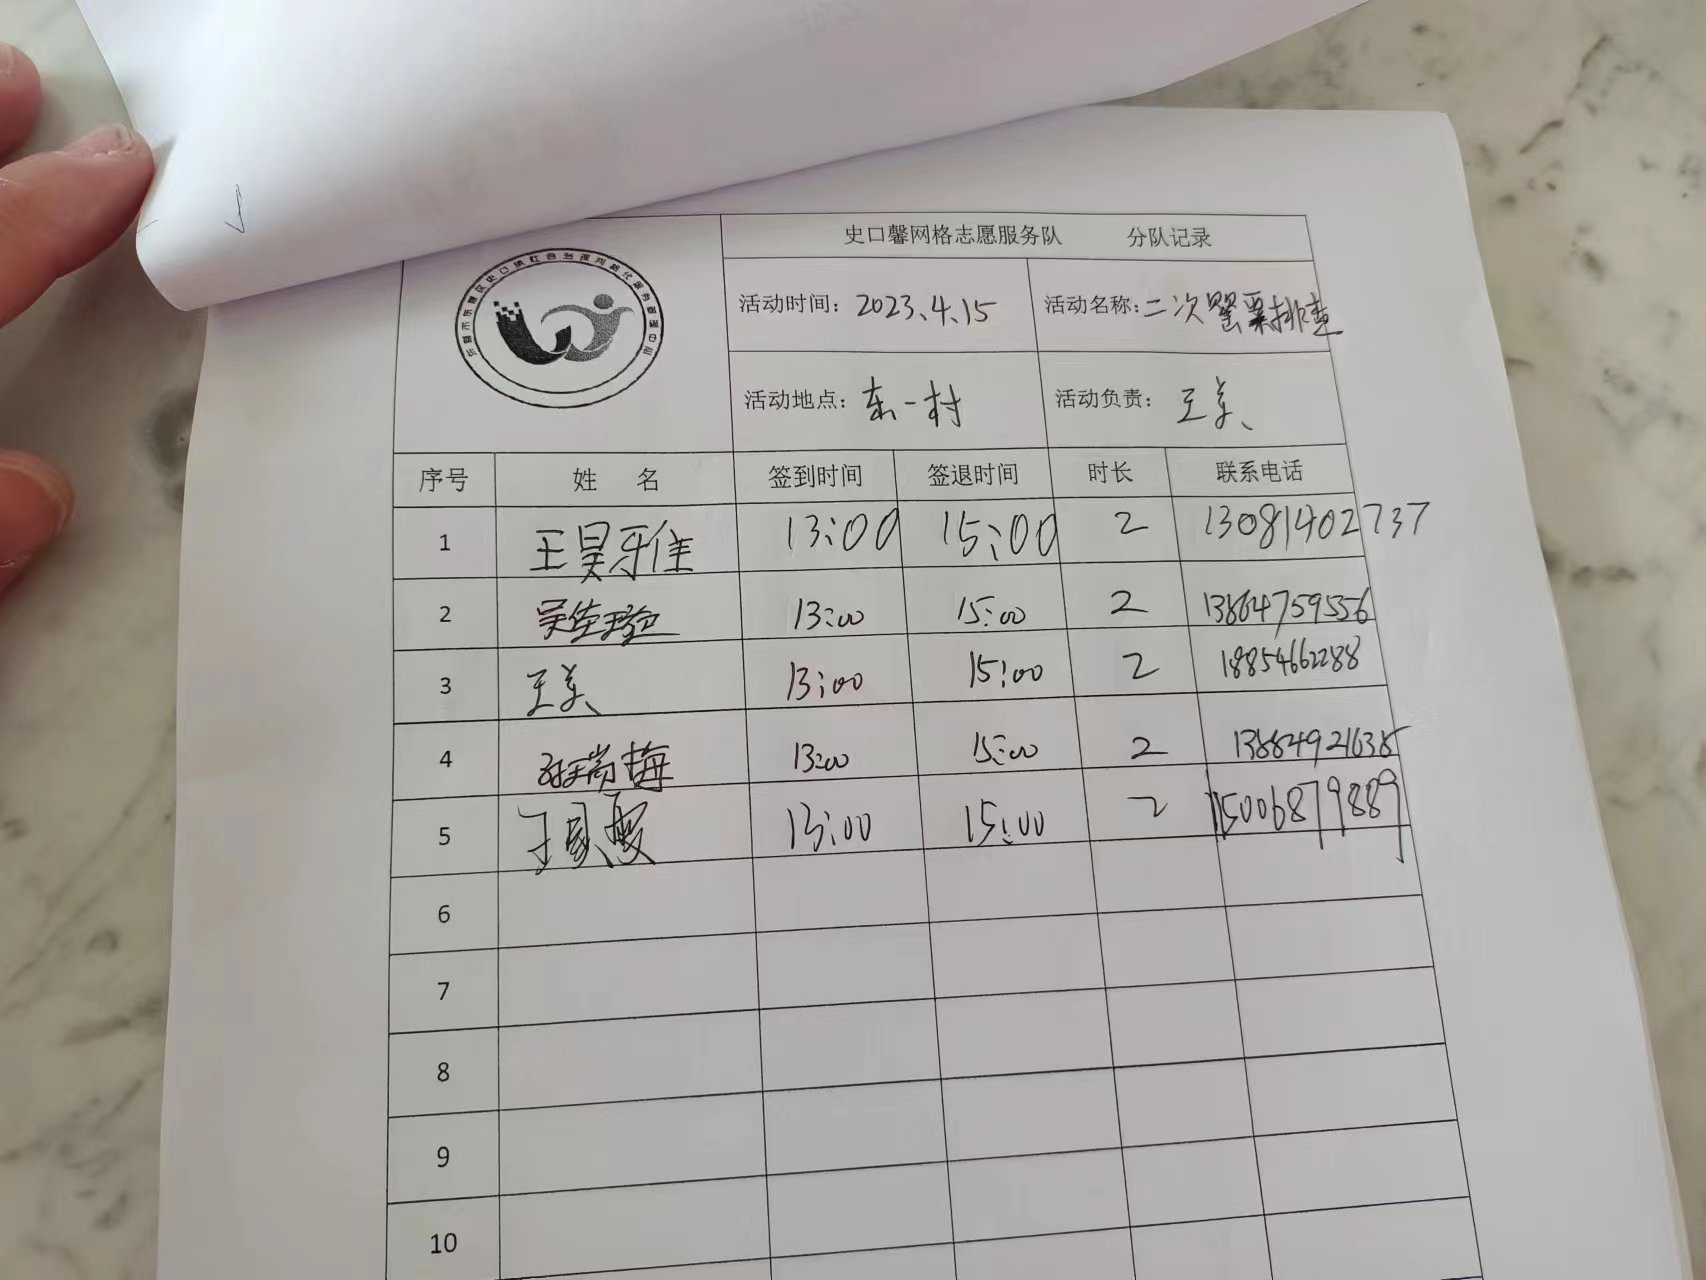 史口馨网格志愿服务队 分队记录
活动时间：2023.4.15 活动名称：二次罂粟排查
活动地点：东一村 活动负责：王美
序号 姓 名 签到时间 签退时间 时长 联系电话
1 王昊牙佳 13:00 15:00 2 13081402737
2 吴佳 13:00 15:00 2 13864759556
3 王美 13:00 15:00 2 18854662288
4 瑞梅 13:00 15:00 2
5 13:00 15:00 2 15006879889
6
7
8
9
10